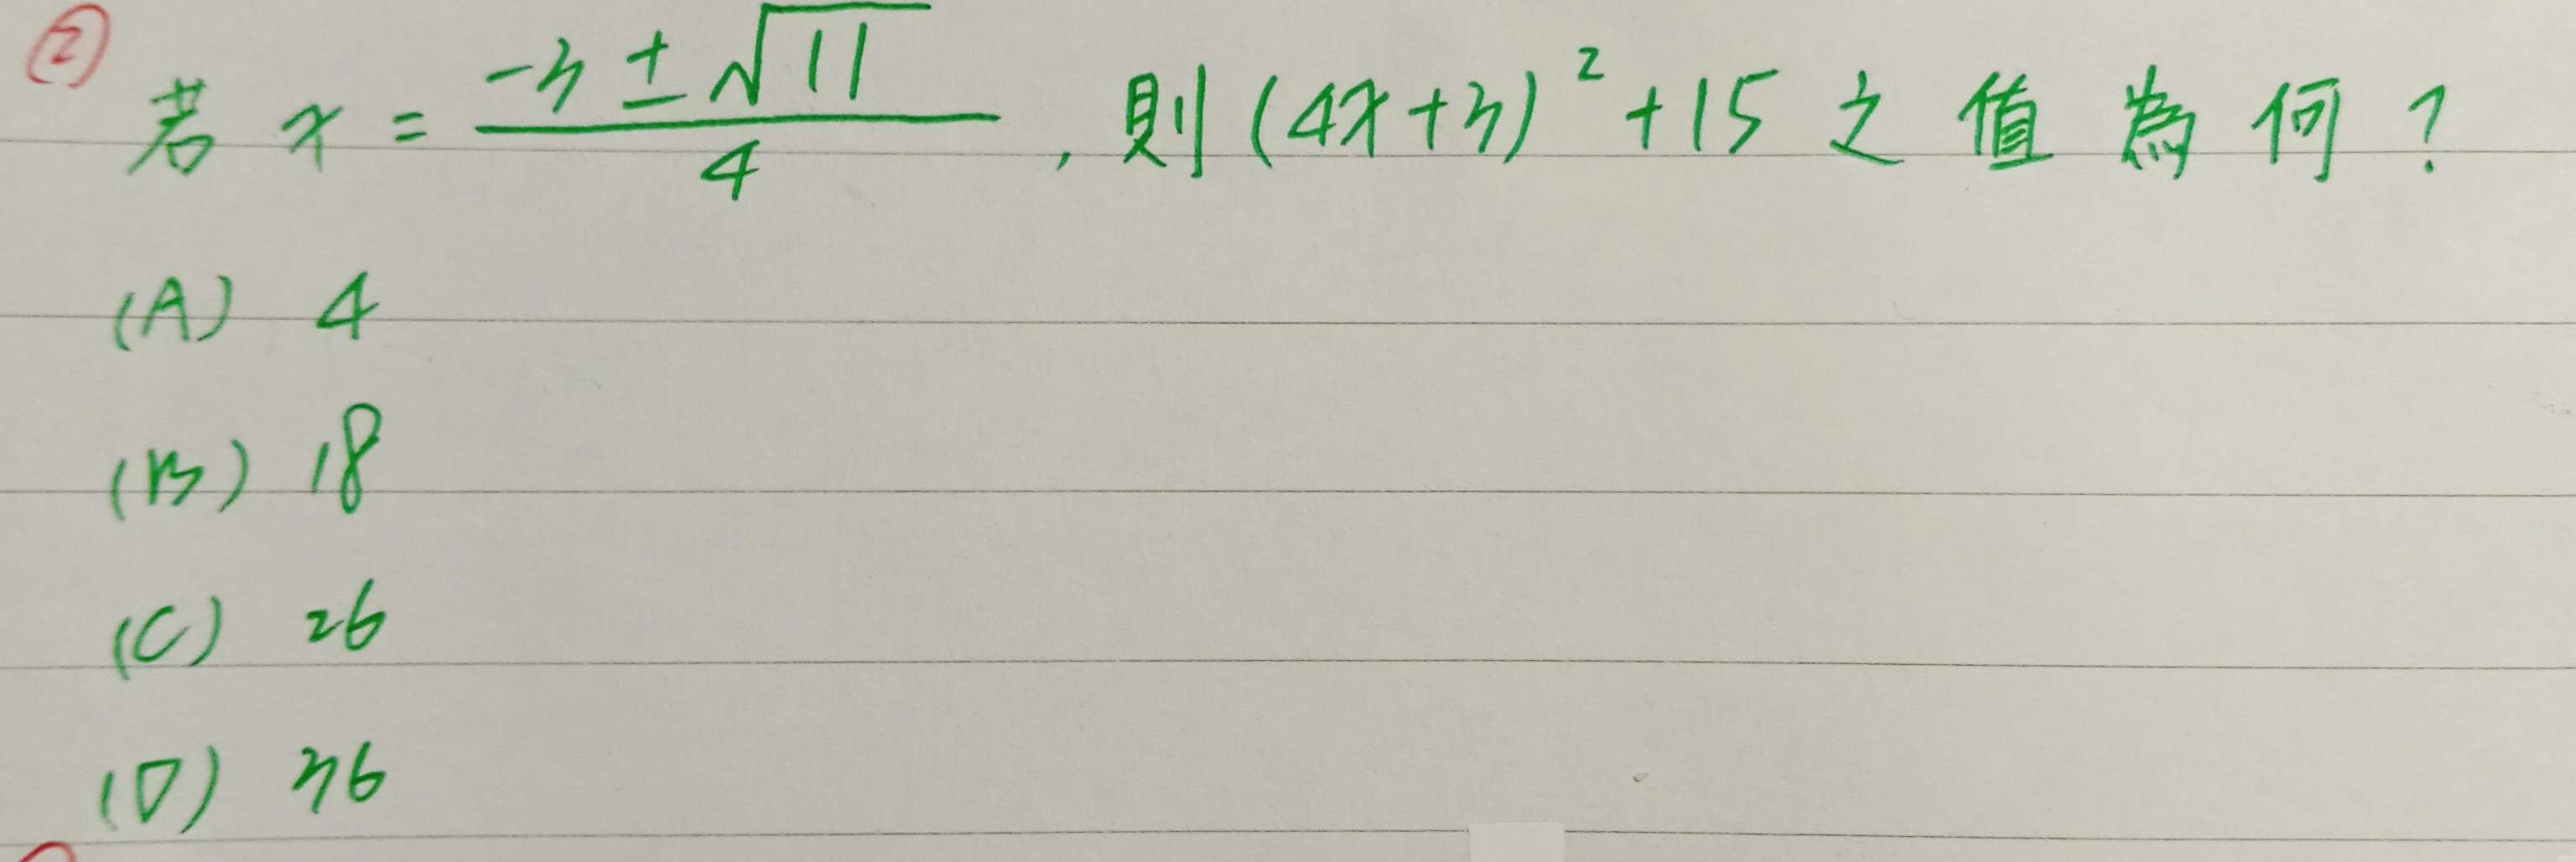 ② 若 x = (-3 ± √11) / 4 , 則 (4x+3)² +15 之 值 為 何 ?
(A) 4
(B) 18
(C) 26
(D) 36